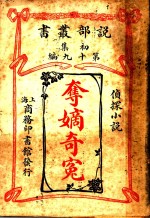 說部叢書
初集
第十九編
偵探小說
奪嫡奇冤
上海商務印書館發行